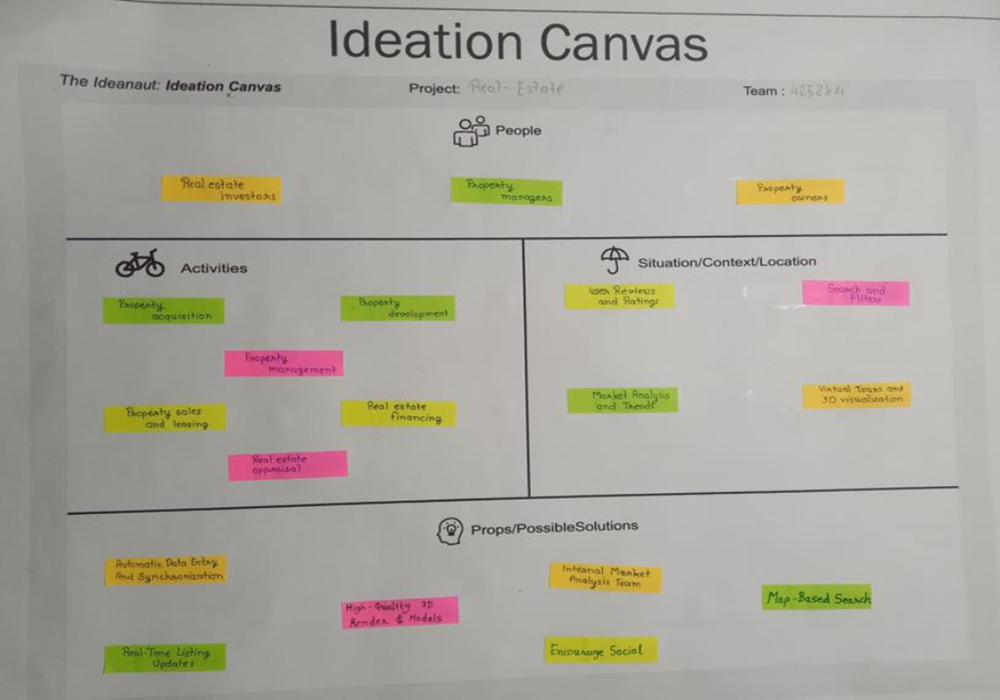 Ideation Canvas
The Ideanaut: Ideation Canvas
Project: Real-Estate
Team : 425284
People
Real estate
investors
Property
managers
Property
owners
Activities
Property
acquisition
Property
development
Property
management
Property sales
and leasing
Real estate
financing
Real estate
appraisal
Situation/Context/Location
User Reviews
and Ratings
Search and
Filters
Market Analysis
and Trends
Virtual Tours and
3D visualization
Props/PossibleSolutions
Automatic Data Entry
And Synchronization
High-Quality 3D
Render & Models
Real-Time Listing
Updates
Internal Market
Analysis Team
Encourage Social
Map-Based Search